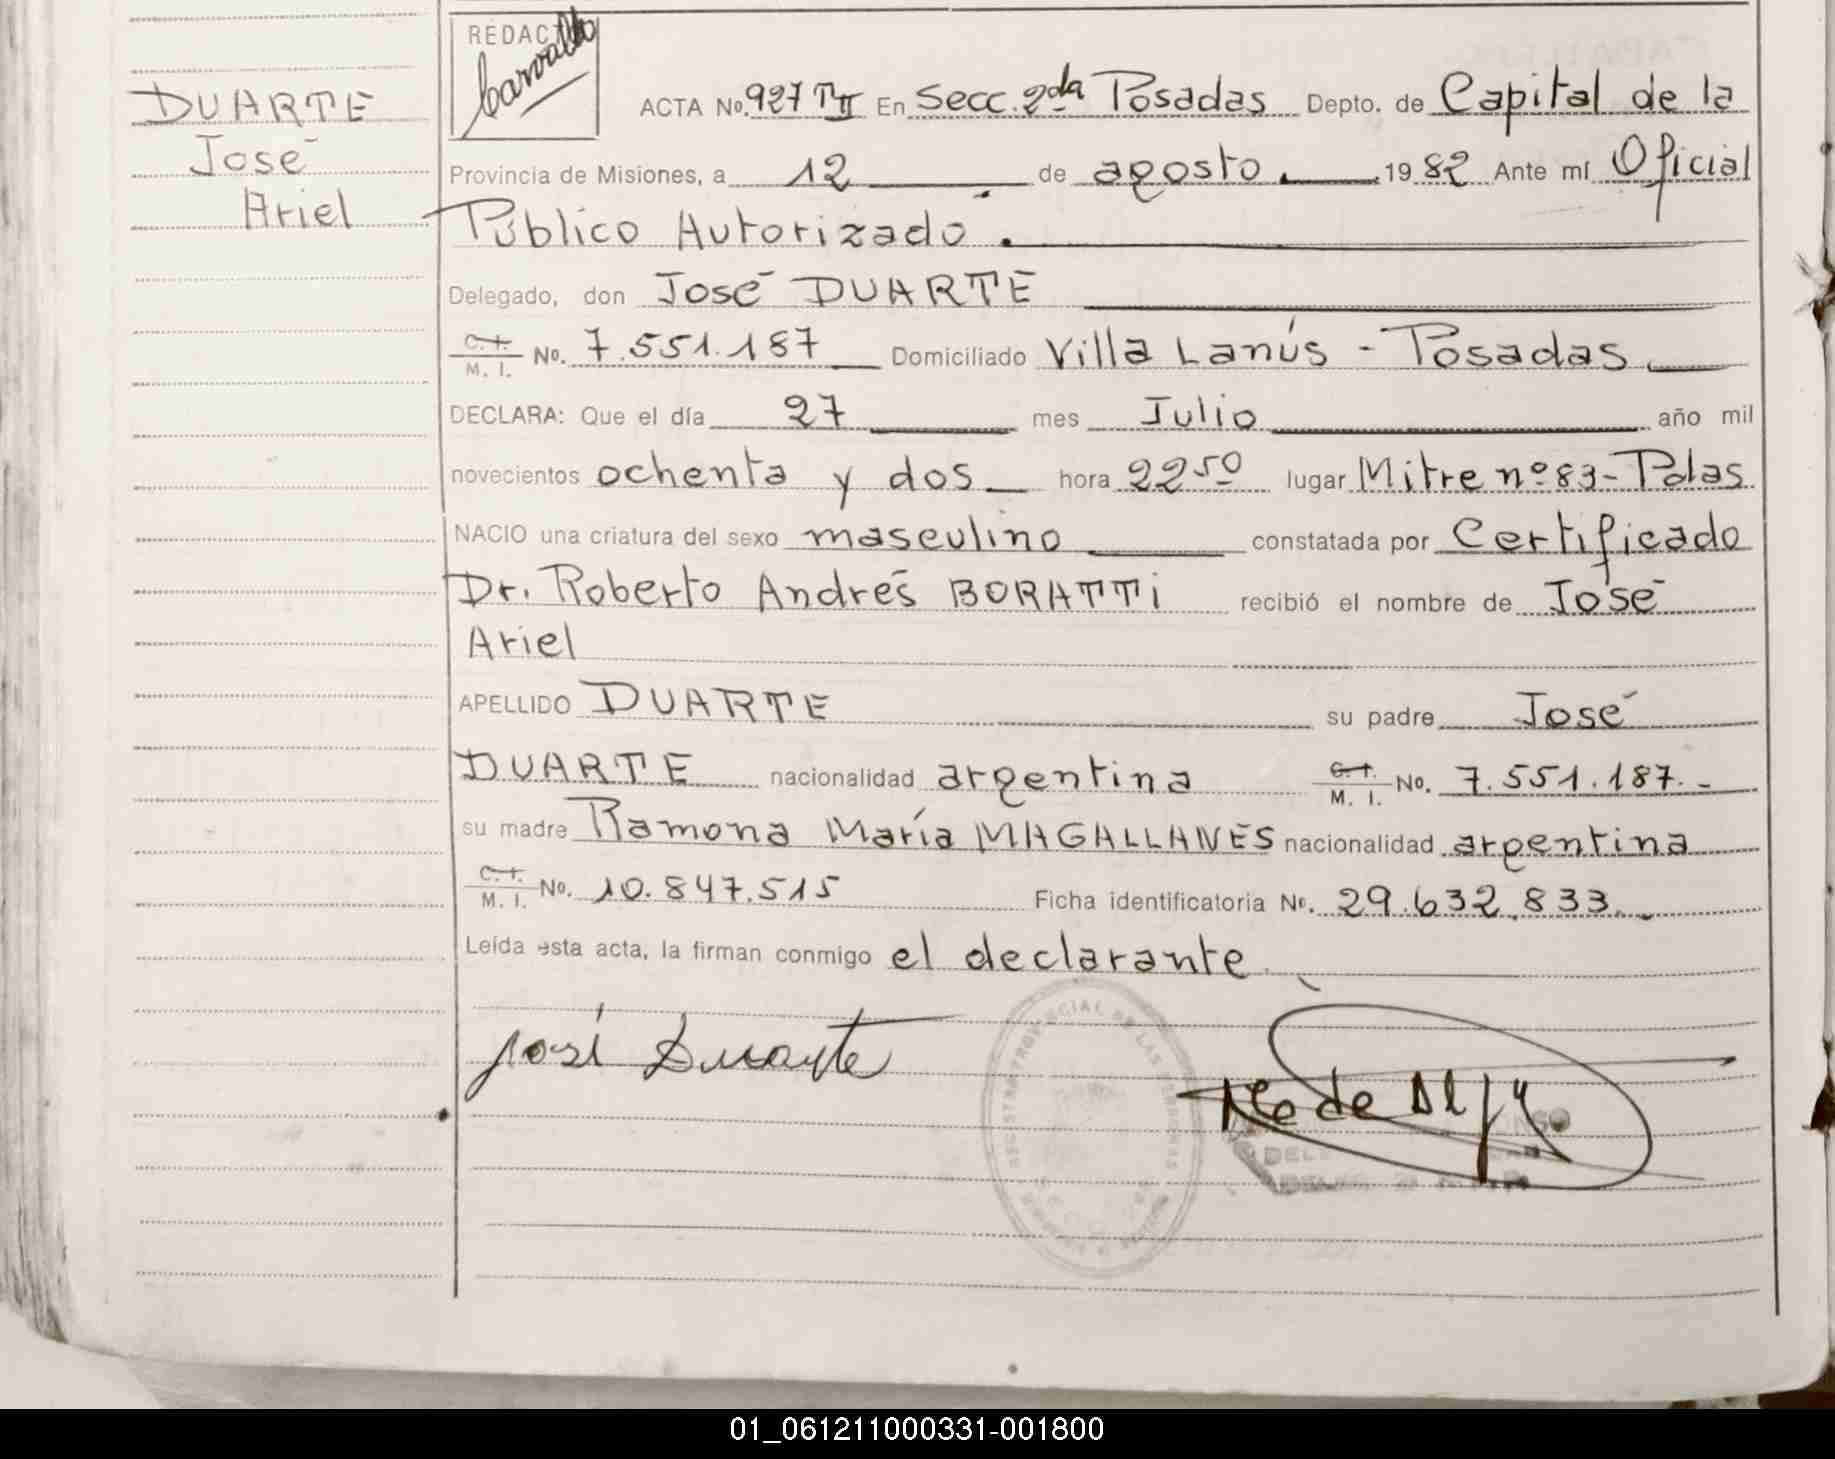 REDAC
Carvallo
DUARTE
José
Ariel
ACTA No. 927 TII En Secc. 2da Posadas Depto. de Capital de la
Provincia de Misiones, a 12 de agosto 1982 Ante mí Oficial
Público Autorizado.
Delegado, don José DUARTE
C.I. M. I. No. 7.551.187 Domiciliado Villa Lanús - Posadas
DECLARA: Que el día 27 mes Julio año mil
novecientos ochenta y dos hora 22 50 lugar Mitre nº 83 - Pdas.
NACIO una criatura del sexo masculino constatada por Certificado
Dr. Roberto Andrés BORATTi recibió el nombre de José
Ariel
APELLIDO DUARTE su padre José
DUARTE nacionalidad argentina C.I. M. I. No. 7.551.187.-
su madre Ramona María MAGALLANES nacionalidad argentina
C.I. M. I. No. 10.847.515 Ficha identificatoria No. 29.632.833.
Leída esta acta, la firman conmigo el declarante.
José Duarte
01_061211000331-001800